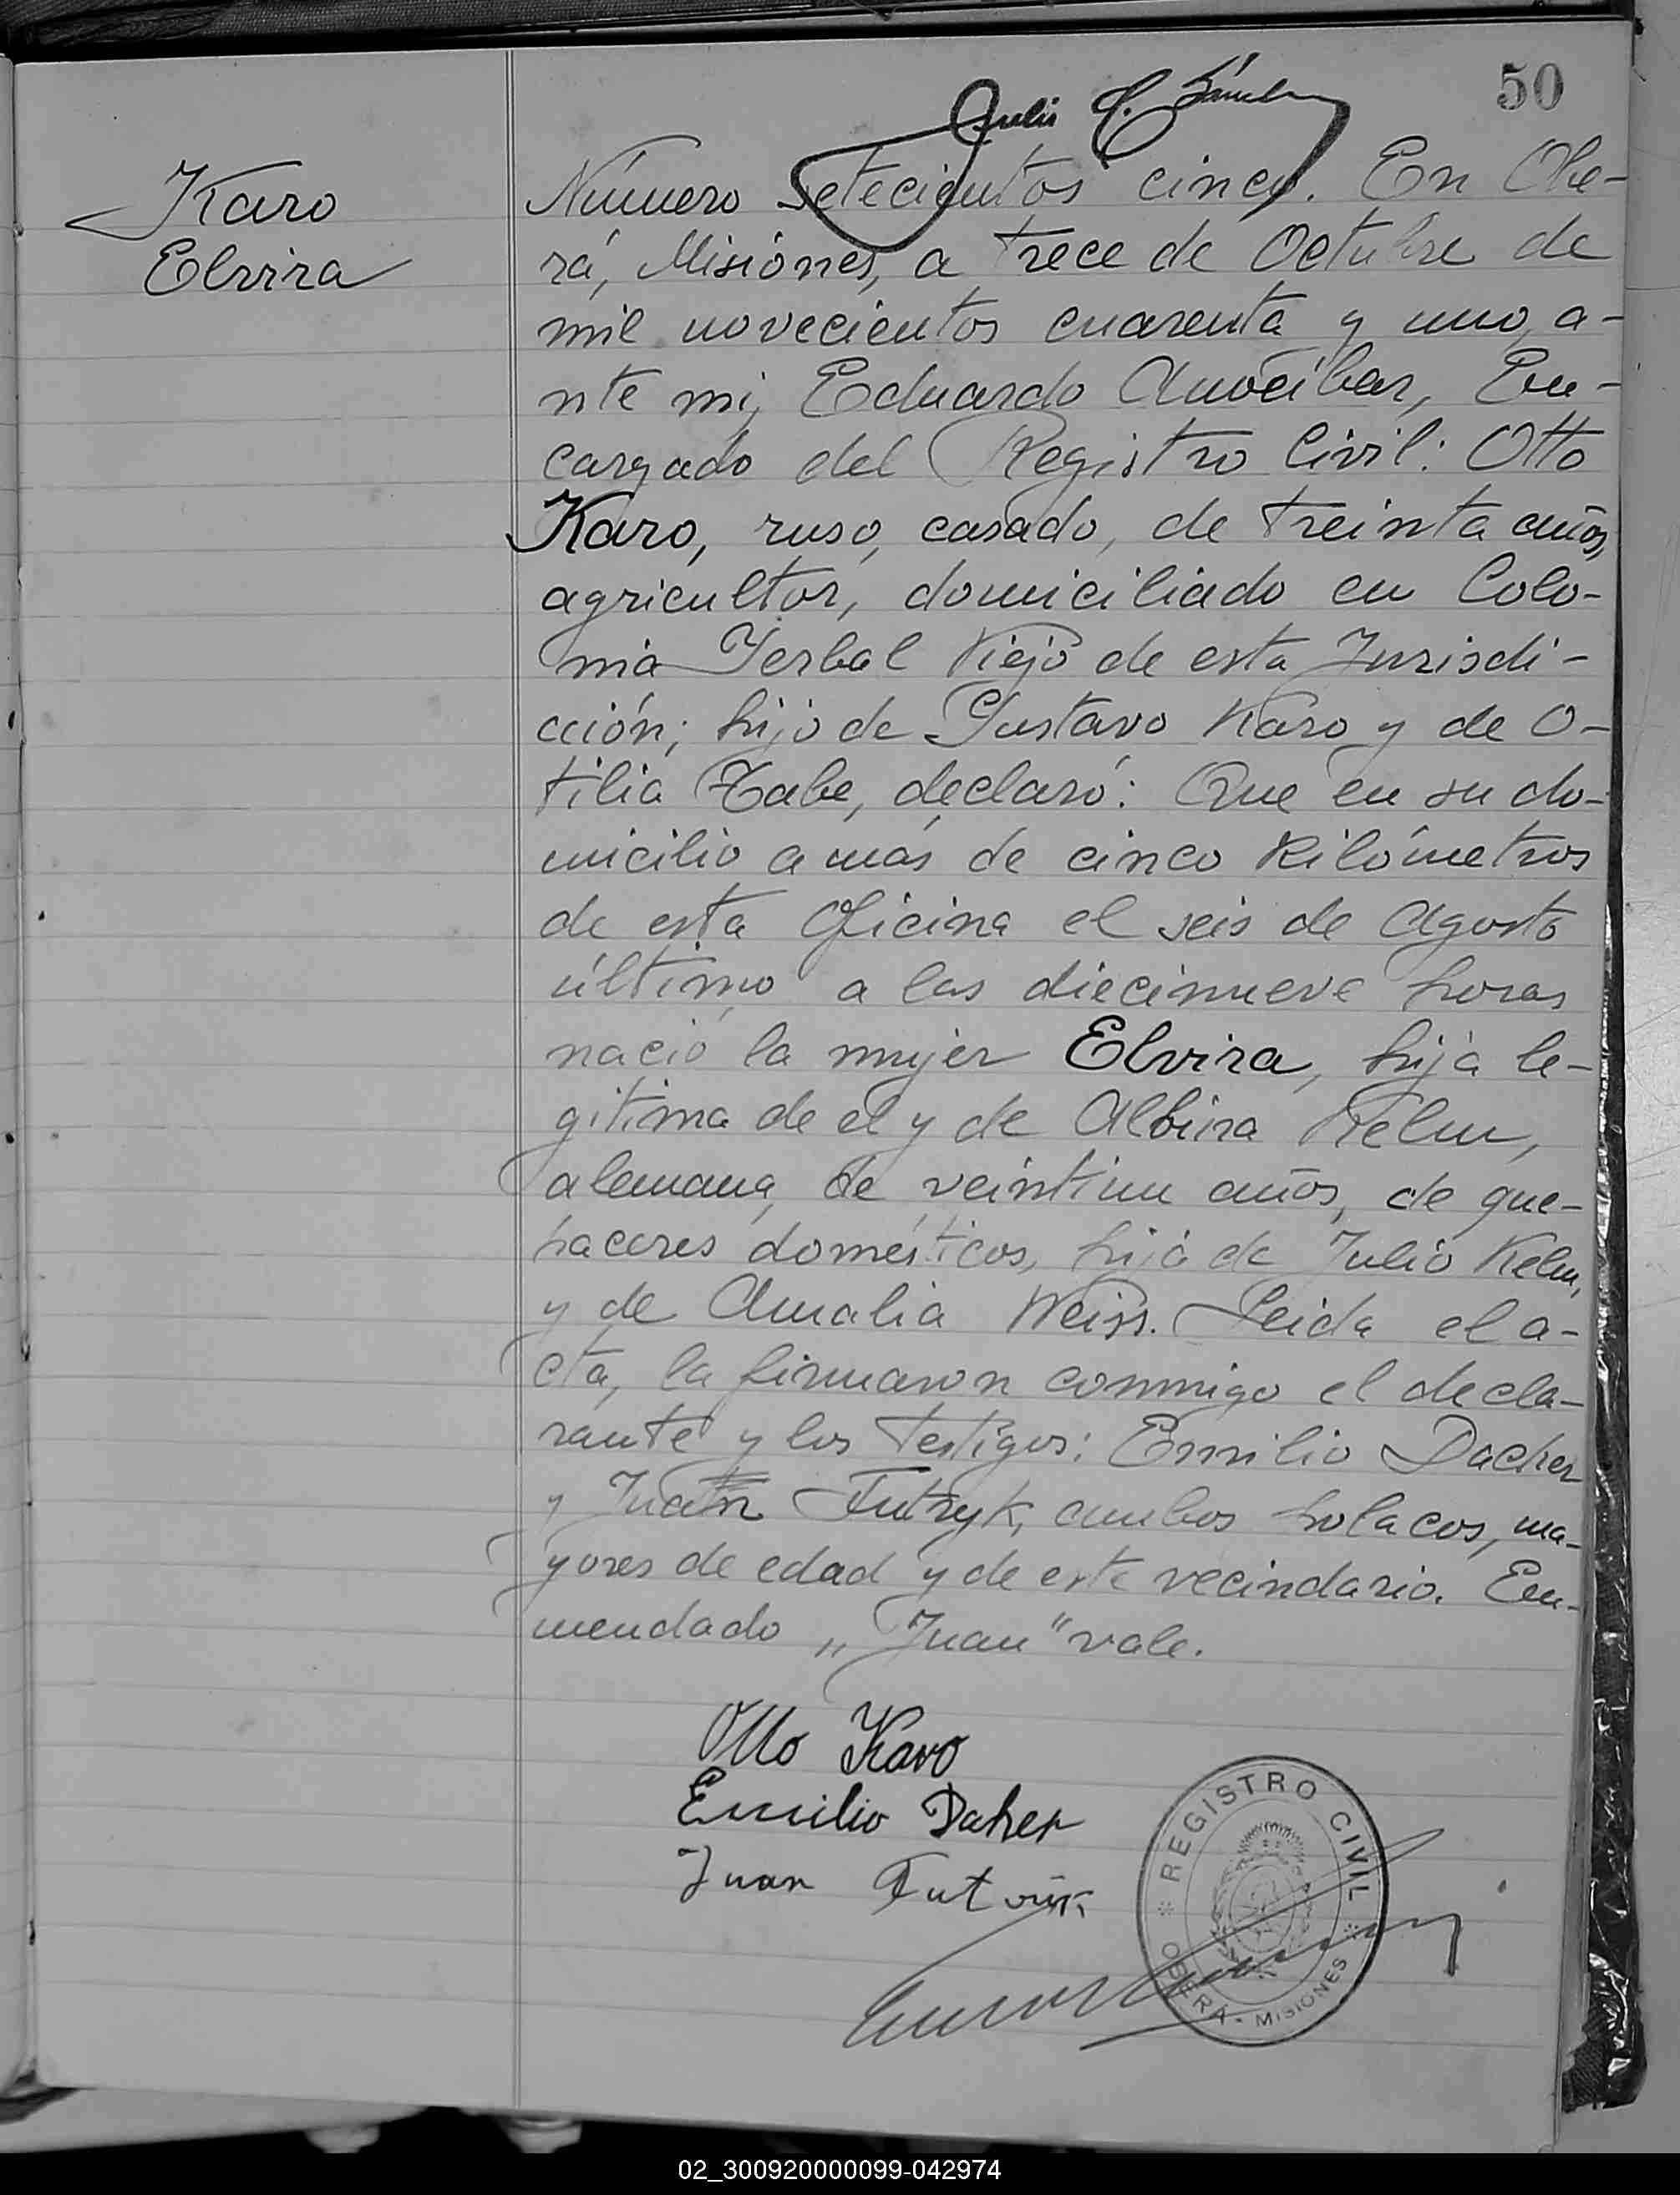 50
Karo
Elvira
Número setecientos cinco. En Obe-
rá, Misiónes, a trece de Octubre de
mil novecientos cuarenta y uno, a-
nte mi, Eduardo Amoeibar, En-
cargado del Registro Civil: Otto
Karo, ruso, casado, de treinta años,
agricultor, domiciliado en Colo-
nia Yerbal Viejo de esta Jurisdi-
cción; hijo de Gustavo Karo y de O-
tilia Tabe, declaró: Que en su do-
micilio a más de cinco Kilómetros
de esta Oficina el seis de Agosto
último a las diecinueve horas
nació la mujer Elvira, hija le-
gitima de el y de Albina Kelm,
alemana, de veintiun años, de que-
haceres domésticos, hija de Julio Kelm,
y de Amalia Weiss. Leida el a-
cta, la firmaron conmigo el decla-
rante y los testigos: Emilio Dacher
y Juan Futryk, ambos polacos, ma-
yores de edad y de este vecindario. En-
mendado „Juan" vale.
Otto Karo
Emilio Daher
Juan
REGISTRO CIVIL
OBERÁ - MISIONES
02_300920000099-042974